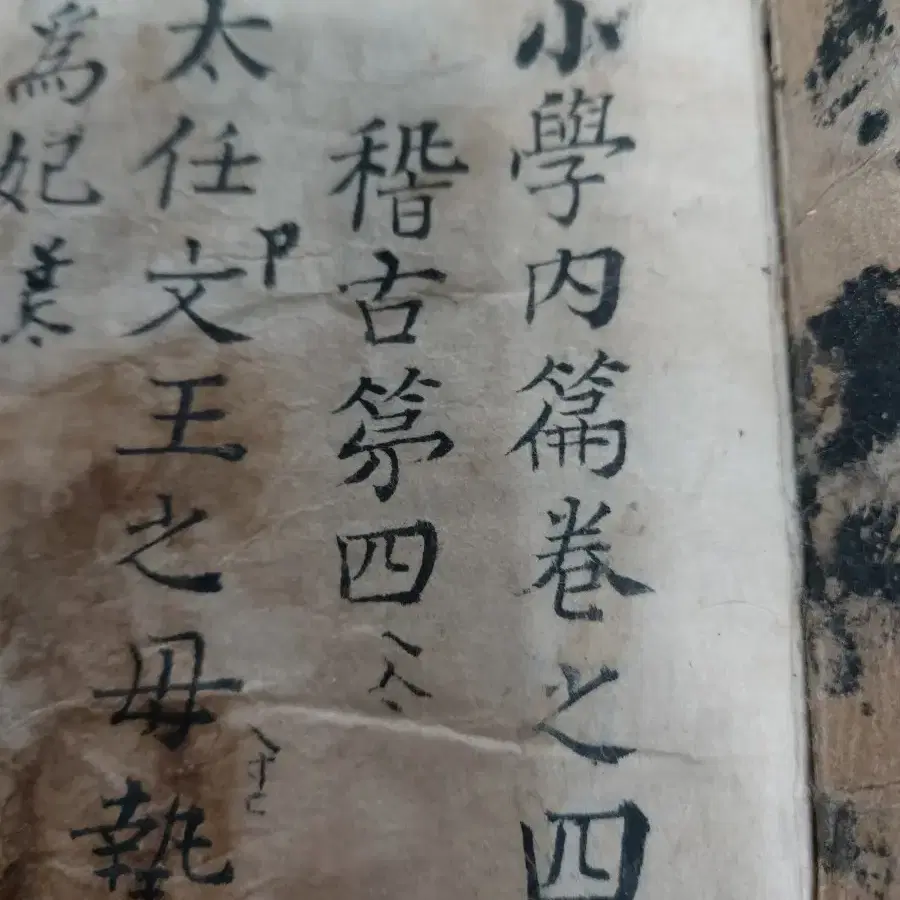 小學內篇卷之四
稽古第四
太任文王之母摯
爲妃